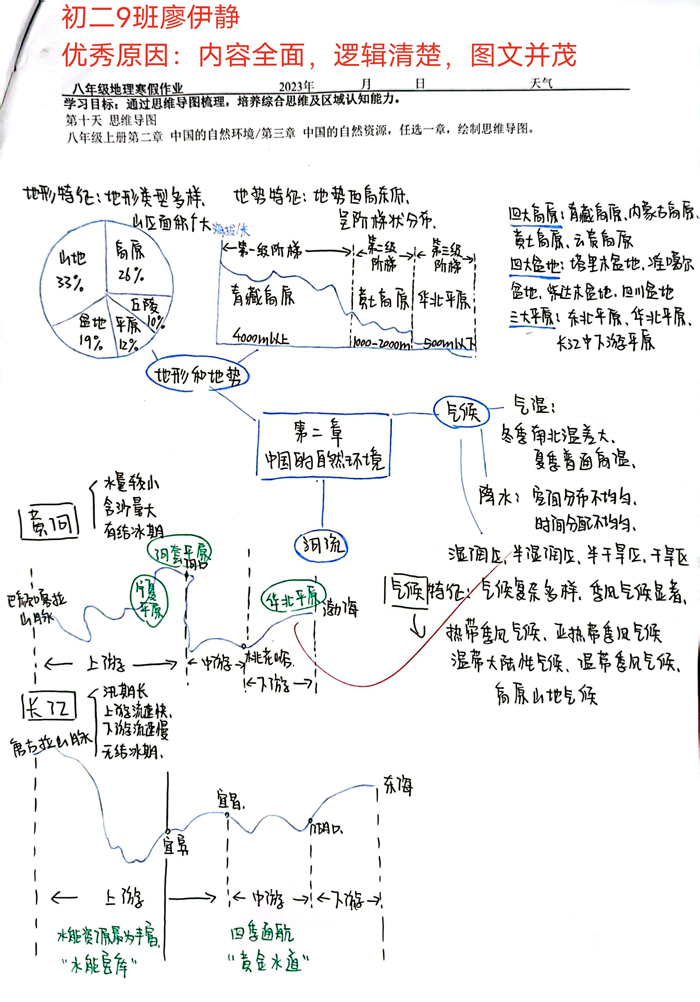 初二9班廖伊静
优秀原因：内容全面，逻辑清楚，图文并茂
八年级地理寒假作业 2023年 月 日 天气
学习目标：通过思维导图梳理，培养综合思维及区域认知能力。
第十天 思维导图
八年级上册第二章 中国的自然环境/第三章 中国的自然资源，任选一章，绘制思维导图。
地形特征：地形类型多样，
山区面积广大
地势特征：地势西高东低，
呈阶梯状分布.
山地
33%
高原
26%
丘陵
10%
平原
12%
盆地
19%
海拔/米
第一级阶梯
第二级
阶梯
第三级
阶梯
青藏高原
黄土高原
华北平原
4000m以上
1000-2000m
500m以下
四大高原：青藏高原、内蒙古高原、
黄土高原、云贵高原
四大盆地：塔里木盆地、准噶尔
盆地、柴达木盆地、四川盆地
三大平原：东北平原、华北平原、
长江中下游平原
地形和地势
第二章
中国的自然环境
气候
气温：
冬季南北温差大、
夏季普遍高温.
降水：空间分布不均匀、
时间分配不均匀.
湿润区、半湿润区、半干旱区、干旱区
气候特征：气候复杂多样，季风气候显著.
热带季风气候、亚热带季风气候
温带大陆性气候、温带季风气候、
高原山地气候
河流
黄河
水量较小
含沙量大
有结冰期
巴颜喀拉
山脉
宁夏
平原
河套平原
河口
华北平原
渤海
上游
中游
桃花峪
下游
长江
汛期长
上游流速快、
下游流速慢
无结冰期.
唐古拉山脉
宜宾
宜昌
湖口
东海
上游
中游
下游
水能资源最为丰富.
“水能宝库”
四季通航
“黄金水道”